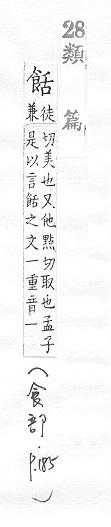 28類篇
餂徒兼切美也又他點切取也孟子是以言餂之文一重音一
(食部.P.185)